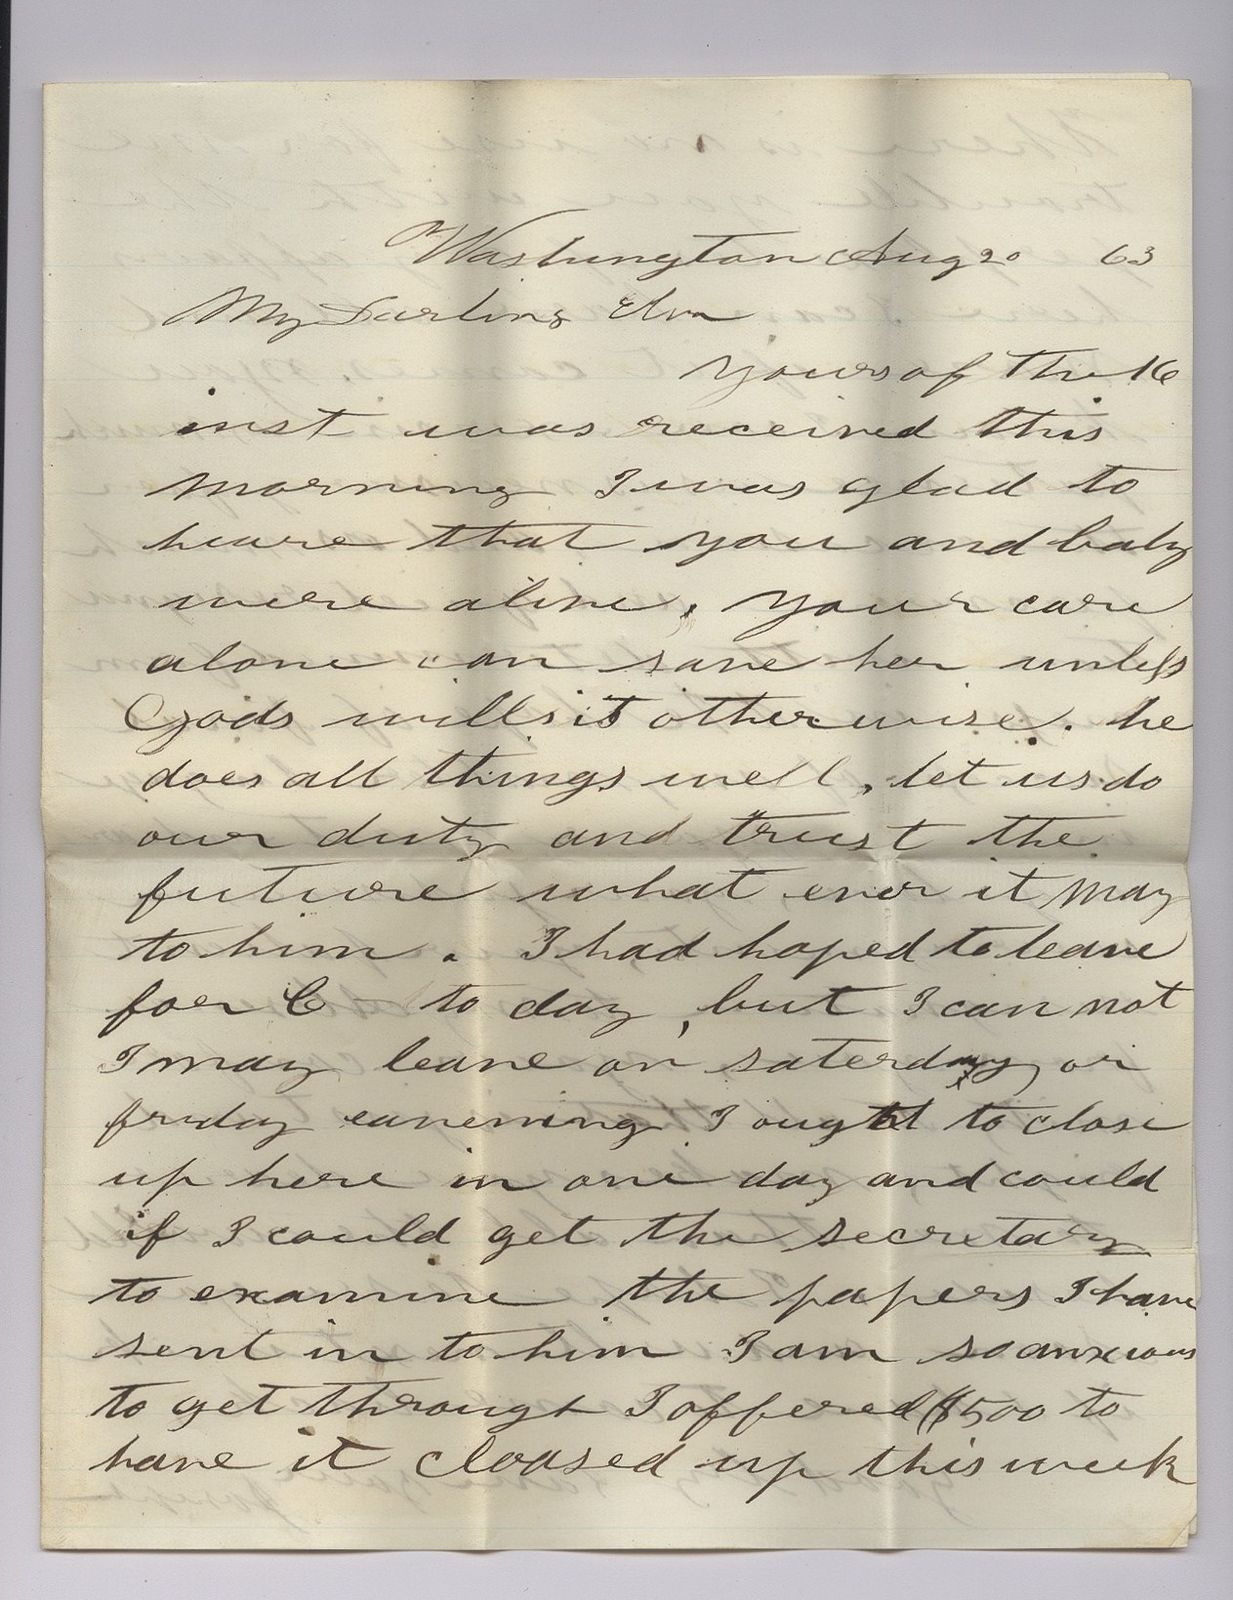 Washington Aug 20 63
My Darling
Yours of the 16
inst was received this
morning I was glad to
heare that you and baby
were alive, your care
alone can save her unless
Gods wills it otherwise. he
does all things well, let us do
our duty and trust the
future what ever it may
to him. I had hoped to leave
for C to day, but I can not
I may leave on saterday or
friday eavening I ought to close
up here in one day and could
if I could get the secretary
to examine the papers I have
sent in to him I am so anxious
to get through I offered $500 to
have it cloased up this week